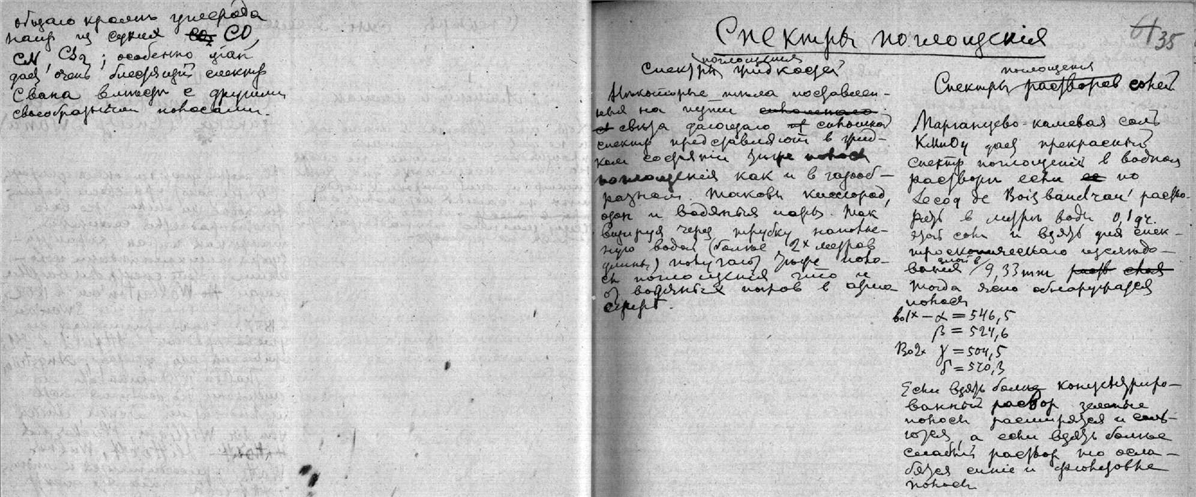 общаго кромѣ углерода
напр из сухих CO,
CN, CS2; особенно циан
дает очень блестящий спектр
Свана вместе с другими
своеобразными полосами.
61 35
Спектры поглощения
спектры поглощения жидкостей
Некоторые тела поставлен-
ныя на пути
света дающаго сплошной
спектр представляют в жид-
ком состоянии те же полосы
поглощения как и в газооб-
разном. Таковы кислород,
и водяныя пары. Так
через трубку наполнен-
ную водой более 2х метров
длины) получают те же поло-
сы поглощения что и
от водяных паров в атмо
сфере.
Спектры поглощения растворов солей
Марганцево-калиевая соль
KMnO4 дает прекрасный
спектр поглощения в водном
растворе если по
Lecoq de Boisbaudran раство-
рить в литре воды 0,1 gr.
этой соли и взять для спек-
троскопическаго изследо-
вания слой в 9,33 mm
Тогда ясно обнаружатся
полосы
во 1х – α = 546,5
β = 524,6
Во 2х γ = 504,5
δ = 570,3
Если взять более концентриро-
ванный раствор зеленые
полосы расширятся и соль-
ются, а если взять более
слабый раствор то осла-
бятся синие и фиолетовые
полосы